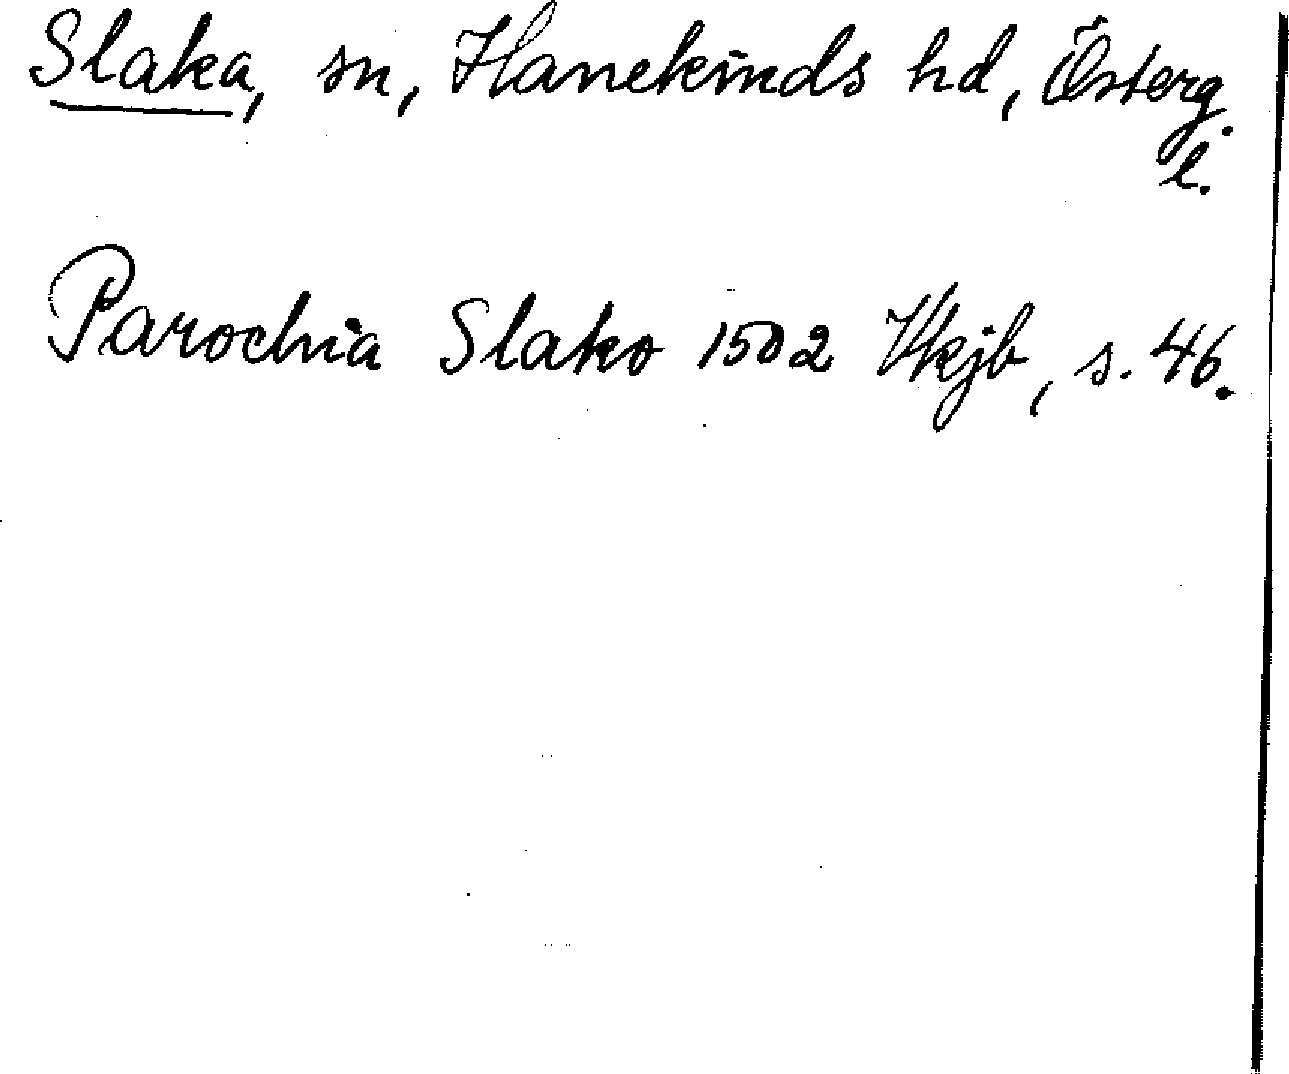 Slaka, sn, Hanekinds hd, Österg.
l.
Parochia Slako 1502 Vkjb, s. 46.